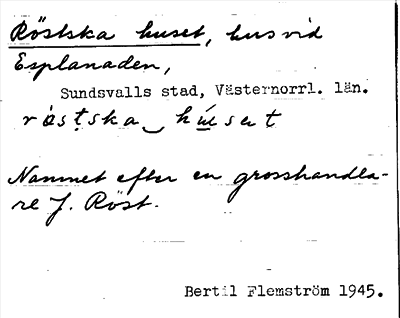 Röstska huset, hus vid
Esplanaden,
Sundsvalls stad, Västernorrl. län.
røsṭska‿hú̱set
Namnet efter en grosshandla-
re J. Röst.
Bertil Flemström 1945.